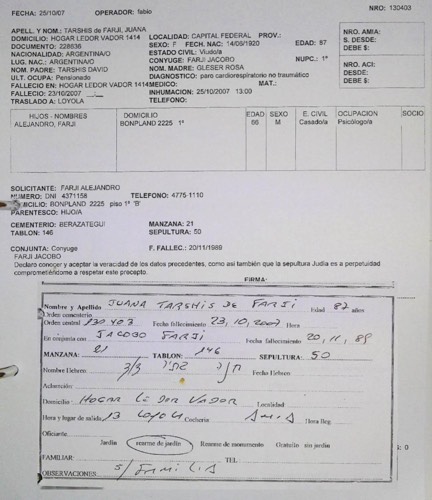 NRO: 130403
FECHA: 25/10/07 OPERADOR: fabio
APELL. Y NOM.: TARSHIS de FARJI, JUANA
DOMICILIO: HOGAR LEDOR VADOR 1414 LOCALIDAD: CAPITAL FEDERAL PROV.:
DOCUMENTO: 228636 SEXO: F FECH. NAC: 14/06/1920 EDAD: 87
NACIONALIDAD: ARGENTINA/O ESTADO CIVIL: Viudo/a
LUG. NAC.: ARGENTINA/O CONYUGE: FARJI JACOBO NUPC.: 1º
NOM. PADRE: TARSHIS DAVID NOM. MADRE: GLESER ROSA
ULT. OCUPA: Pensionado DIAGNOSTICO: paro cardiorespiratorio no traumático
FALLECIO EN: HOGAR LEDOR VADOR 1414 MEDICO: MAT.:
FALLECIO: 23/10/2007 INHUMACION: 25/10/2007 13:00
TRASLADO A: LOYOLA TELEFONO:
NRO. AMIA:
S. DESDE:
DEBE $:
NRO. ACI:
DESDE:
DEBE $:
HIJOS - NOMBRES DOMICILIO EDAD SEXO E. CIVIL OCUPACION SOCIO
ALEJANDRO, FARJI BONPLAND 2225 1º 66 M Casado/a Psicólogo/a
SOLICITANTE: FARJI ALEJANDRO
NUMERO: DNI 4371158 TELEFONO: 4775-1110
BONPLAND 2225 piso 1º "B"
PARENTESCO: HIJO/A
CEMENTERIO: BERAZATEGUI MANZANA: 21
TABLON: 146 SEPULTURA: 50
CONJUNTA: Conyuge F. FALLEC.: 20/11/1989
FARJI JACOBO
Declaro conocer y aceptar la veracidad de los datos precedentes, como asi también que la sepultura Judía es a perpetuidad
comprometiéndome a respetar este precepto.
FIRMA:
Nombre y Apellido JUANA TARSHIS DE FARJI Edad 87 años
Orden cementerio
Orden central 130403 Fecha fallecimiento 23,10,2007 Hora
En conjunta con JACOBO FARJI Fecha fallecimiento 20,11,89
MANZANA: 21 TABLON: 146 SEPULTURA: 50
Nombre Hebreo Fecha Hebreo
Aclaración
Domicilio HOGAR LE DOR VADOR Localidad
Hora y lugar de salida 13 LOYOLA Cochería Hora lleg.
Oficiante
Jardín rearme de jardín Rearme de monumento Gratuito sin jardín
FAMILIAR TEL.
OBSERVACIONES: S/ FAMILIA
$: 0